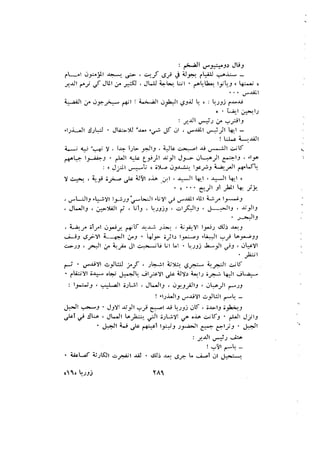 وقال دوميتيوس الضخم :
— سنذهب للقيام بجولة في قرى كريت ، حتى يسجد المؤمنون امام
« نعمتها » ويأتوا بعطاياهم . اننا بحاجة للمال ، لكثير من المال كي نرمم الدير
المقدس ...
فدمدم زوربا : « يا لذوي البطون الضخمة : انهم سيخرجون من القضية
رابحين ايضا » .
واقترب من رئيس الدير :
— ايها الرئيس المقدس ، ان كل شيء معد للاحتفال . لتبارك العذراء
القديسة عملنا !
كانت الشمس قد اصبحت عالية . والجو حارا جدا ، لا تهب فيه نسمة
هواء . واجتمع الرهبان حول الوتد المرفوع عليه العلم . وجففوا جباههم
بأكمامهم العريضة وشرعوا ينشدون صلاة « تأسيس المنزل » :
« ايها السيد ، ايها السيد ، ابن هذه الآلة على صخرة قوية ، بحيث لا
يؤثر بها المطر او الريح ... » .
وغمسوا مرشة الماء المقدس في الاناء النحاسي ورشوا الاشياء والناس ،
والوتد ، والحبل ، والبكرات ، وزوربا ، وأنا ، ثم الفلاحين ، والعمال ،
والبحر .
وبعد ذلك رفعوا الايقونة ، بحذر شديد كأنهم يرفعون امرأة مريضة ،
ووضعوها قرب الببغاء وصنعوا دائرة حولها . ومن الجهة الاخرى وقف
الاعيان ، وفي الوسط زوربا . اما انا فانسحبت الى مقربة من البحر ، ورحت
انتظر .
كانت التجربة ستجري بثلاثة اشجار ، كرمز للثالوث الاقدس . ثم
سيضاف اليها شجرة رابعة دلالة على الاعتراف بالجميل تجاه سيدة الانتقام .
ورسم الرهبان ، والقرويون ، والعمال ، اشارة الصليب ، وتمتموا :
— باسم الثالوث الاقدس والعذراء !
وبخطوة واحدة ، كان زوربا قد اصبح قرب الوتد الاول . وسحب الحبل
وانزل العلم . وكانت هذه هي الاشارة التي ينتظرها العمال ، هناك في اعلى
الجبل . وتراجع جميع الحضور وثبتوا أعينهم على قمة الجبل .
هتف رئيس الدير :
— باسم الآب !
يستحيل ان أصف ما جرى بعد ذلك . لقد انفجرت الكارثة كصاعقة .
٢٨٩
زوربا «١٩»